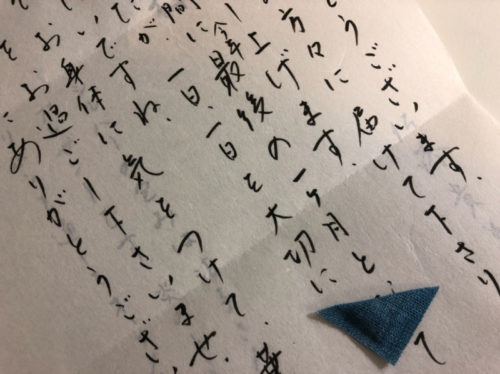 うございます。
方々に届けて下さり
上げます。
に今年最後の一ヶ月と
一日、一日を大切に
ですね、
お身体に気をつけて
お過ごし下さいませ。
ありがとうござ